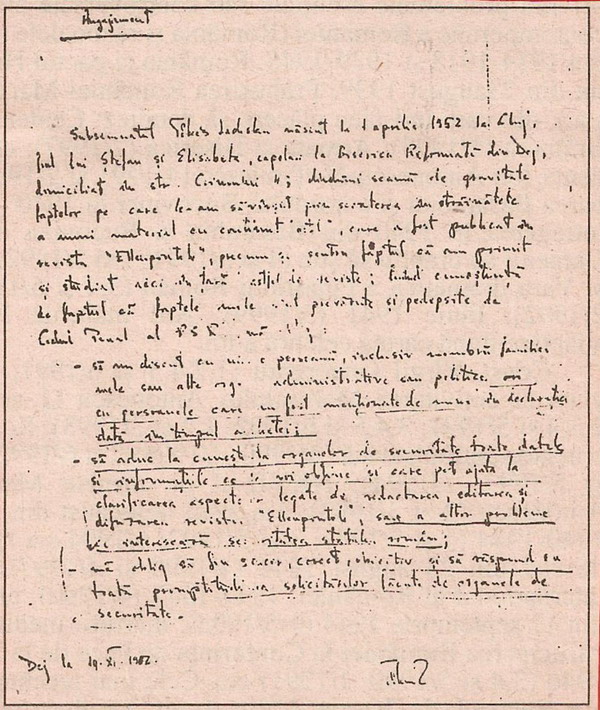 Angajament
Subsemnatul Tőkés Ladislau născut la 1 aprilie 1952 la Cluj,
fiul lui Ștefan și Elisabeta, capelan la Biserica Reformată din Dej,
domiciliat în str. Crinului 4; dîndu-mi seama de gravitatea
faptelor pe care le-am săvîrșit prin scoaterea în străinătate
a unui material cu conținut ostil, care a fost publicat în
revista "Ellenpontok", precum și pentru faptul că am primit
și studiat aici în țară astfel de reviste; luînd cunoștință
de faptul că faptele mele sînt prevăzute și pedepsite de
Codul Penal al RSR mă oblig:
- să nu discut cu nici o persoană, inclusiv membrii familiei
mele sau alte administrative sau politice ori
cu persoanele care au fost menționate de mine în declarația
dată în timpul anchetei;
- să aduc la cunoștința organelor de securitate toate datele
și informațiile ce le voi obține și care pot ajuta la
clarificarea aspectelor legate de redactarea, editarea și
difuzarea revistei "Ellenpontok", sau a altor probleme
ce interesează securitatea statului român;
- mă oblig să fiu sincer, corect, obiectiv și să răspund cu
toată promptitudinea solicitărilor făcute de organele de
securitate.
Dej la 19.XI.1982.